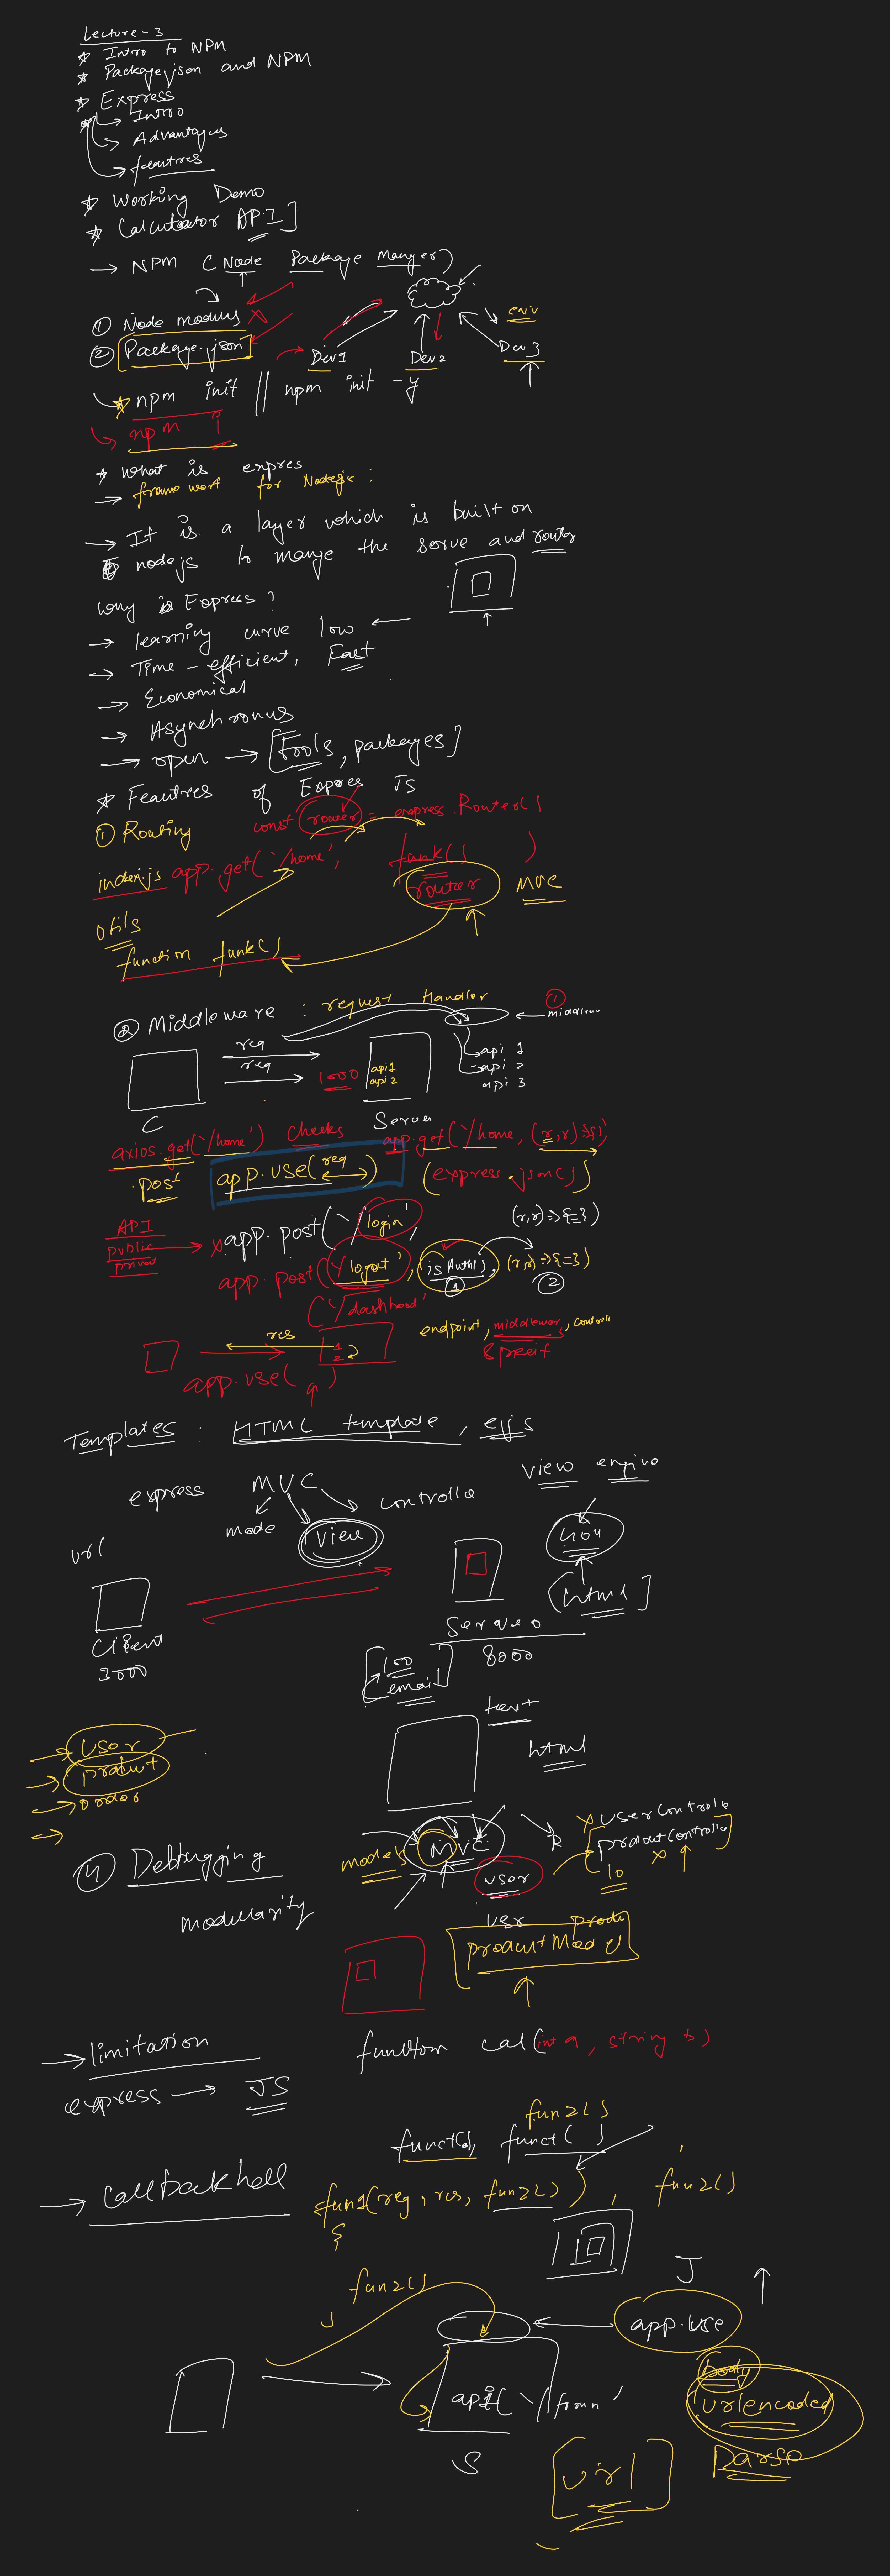 Lecture-3
* Intro to NPM
* Package.json and NPM
* Express
→ Intro
→ Advantages
→ features
* Working Demo
* Calculator API]
→ NPM (Node Package Manger)
① Node modules X
② Package.json
env
Dev1 Dev2 Dev3
* npm init || npm init -y
npm i
* What is expres
→ frame work for Nodejs :
→ It is a layer which is built on
nodejs to mange the serve and router
Why is Express?
→ learning curve low ←
→ Time-efficient, Fast
→ Economical
→ Asynchronus
→ open → [Tools, packages]
* Feautres of Expres JS
① Routing const router = express.Router()
index.js app.get('/home', funk() )
router MVC
utils
function funk()
② Middleware : request Handler
①
req
req
1000
api1
api2
→ api 1
→ api 2
api 3
C Server
axios.get('/home') checks app.get('/home, (r,r)=>{})
.post app.use(req) (express.json())
API
public
privat
x app.post('/login', (r,r)=>{=})
app.post('/logout', isAuth(), (r,r)=>{=})
① ②
('/dashboad'
res
1
2
endpoint, middleware, controll
app.use( )
Templates : HTML template, ejs
express MVC controlle
mode View
view engine
url
[html]
Client
3000
Server
8000
[100
email]
text
html
user
product
order
④ Debugging
modularity
models MVC R
x userControlle
productController
x
10
user
usr produ
productModel
→ limitation
express → JS
function cal(int a, string b)
fun2()
funct(), funct( )
→ Callback hell
fun1(req, res, fun2()) , fun2()
{
fun2()
J
app.use
body
urlencoded
Parse
S
[url]